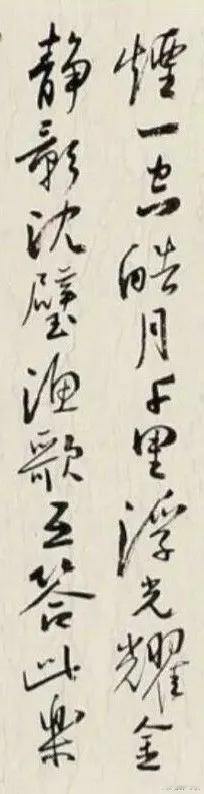 煙一空皓月千里浮光耀金
静影沈璧渔歌互答此樂